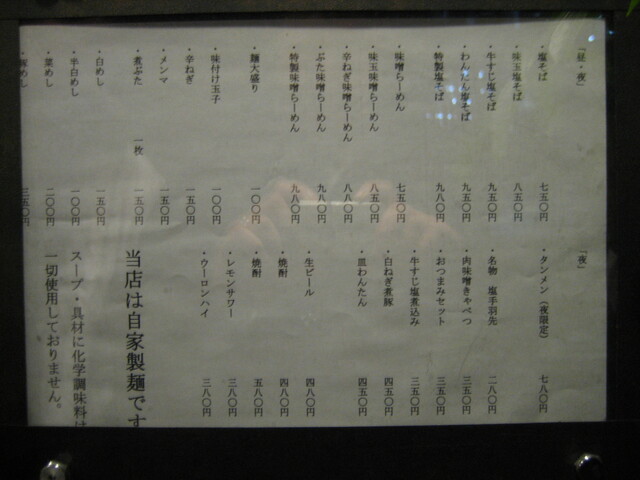 「昼・夜」
・塩そば 七五〇円
・味玉塩そば 八五〇円
・牛すじ塩そば 九五〇円
・わんたん塩そば 九五〇円
・特製塩そば 九八〇円
・味噌らーめん 七五〇円
・味玉味噌らーめん 八五〇円
・辛ねぎ味噌らーめん 八八〇円
・ぶた味噌らーめん 九八〇円
・特製味噌らーめん 九八〇円
・麺大盛り 一〇〇円
・味付け玉子 一〇〇円
・辛ねぎ 一五〇円
・メンマ 一五〇円
・煮ぶた 一枚 一五〇円
・白めし 一五〇円
・半白めし 一〇〇円
・菜めし 二〇〇円
・豚めし 三五〇円
「夜」
・タンメン（夜限定） 七八〇円
・名物 塩手羽先 二八〇円
・肉味噌きゃべつ 三五〇円
・おつまみセット 三五〇円
・牛すじ塩煮込み 三五〇円
・白ねぎ煮豚 四五〇円
・皿わんたん 四五〇円
・生ビール 四八〇円
・焼酎 四八〇円
・焼酎 五八〇円
・レモンサワー 三八〇円
・ウーロンハイ 三八〇円
当店は自家製麺です
スープ・具材に化学調味料は
一切使用しておりません。